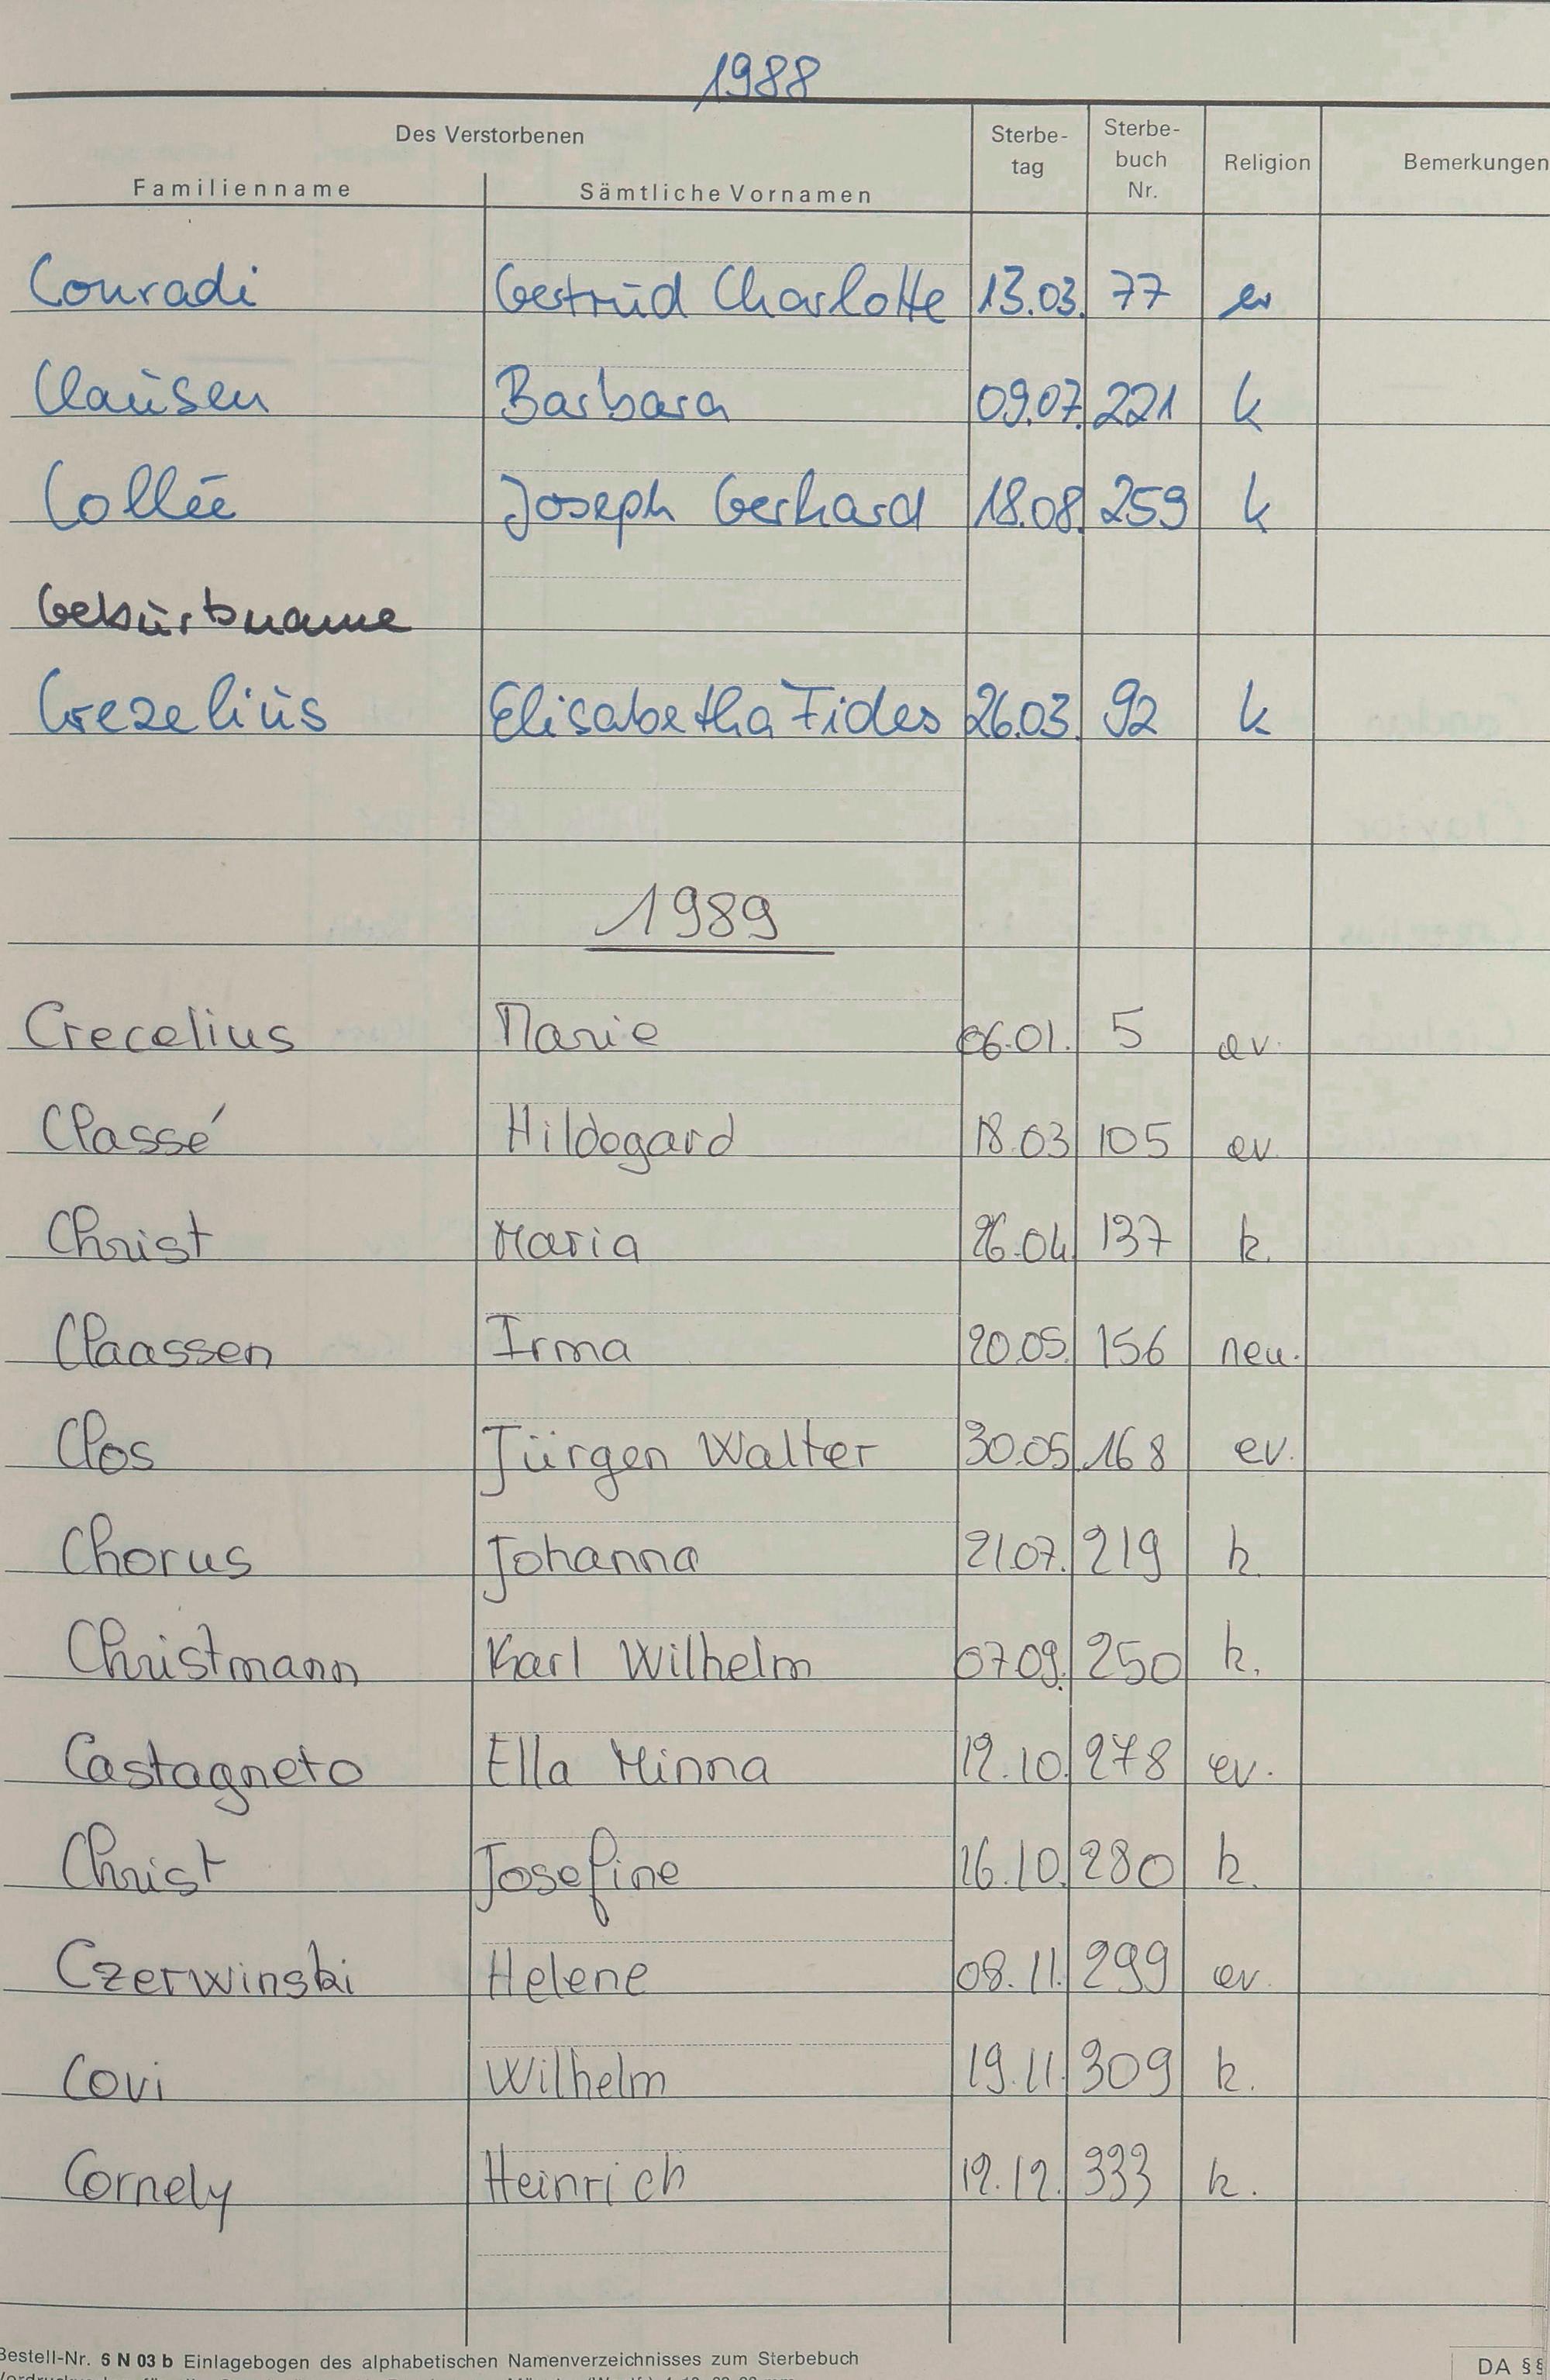 1988
Des Verstorbenen
Familienname Sämtliche Vornamen Sterbe-tag Sterbe-buch Nr. Religion Bemerkungen
Conradi Gertrud Charlotte 13.03. 77 ev
Clausen Barbara 09.07. 221 k
Collée Joseph Gerhard 18.08. 259 k
Geburtsname
Crezelius Elisabetha Fides 26.03. 92 k
1989
Crecelius Marie 06.01. 5 ev.
Classé Hildegard 18.03 105 ev.
Christ Maria 26.04 137 k.
Claassen Irma 20.05. 156 neu.
Clos Jürgen Walter 30.05. 168 ev.
Chorus Johanna 21.07. 219 k.
Christmann Karl Wilhelm 07.09. 250 k.
Castagneto Ella Minna 12.10. 278 ev.
Christ Josefine 16.10. 280 k.
Czerwinski Helene 08.11. 299 ev.
Covi Wilhelm 19.11. 309 k.
Cornely Heinrich 12.12. 333 k.
Bestell-Nr. 6 N 03 b Einlagebogen des alphabetischen Namenverzeichnisses zum Sterbebuch
DA §§